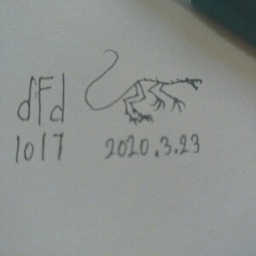 dFd
1017 2020.3.23